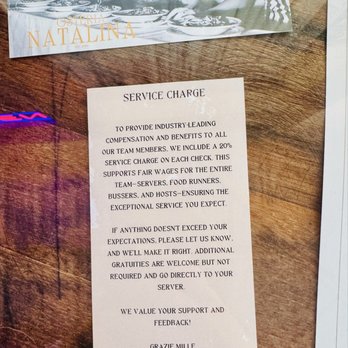 NATALINA
SERVICE CHARGE
TO PROVIDE INDUSTRY-LEADING
COMPENSATION AND BENEFITS TO ALL
OUR TEAM MEMBERS, WE INCLUDE A 20%
SERVICE CHARGE ON EACH CHECK. THIS
SUPPORTS FAIR WAGES FOR THE ENTIRE
TEAM-SERVERS, FOOD RUNNERS,
BUSSERS, AND HOSTS-ENSURING THE
EXCEPTIONAL SERVICE YOU EXPECT.
IF ANYTHING DOESN'T EXCEED YOUR
EXPECTATIONS, PLEASE LET US KNOW,
AND WE'LL MAKE IT RIGHT. ADDITIONAL
GRATUITIES ARE WELCOME BUT NOT
REQUIRED AND GO DIRECTLY TO YOUR
SERVER.
WE VALUE YOUR SUPPORT AND
FEEDBACK!
GRAZIE MILLE